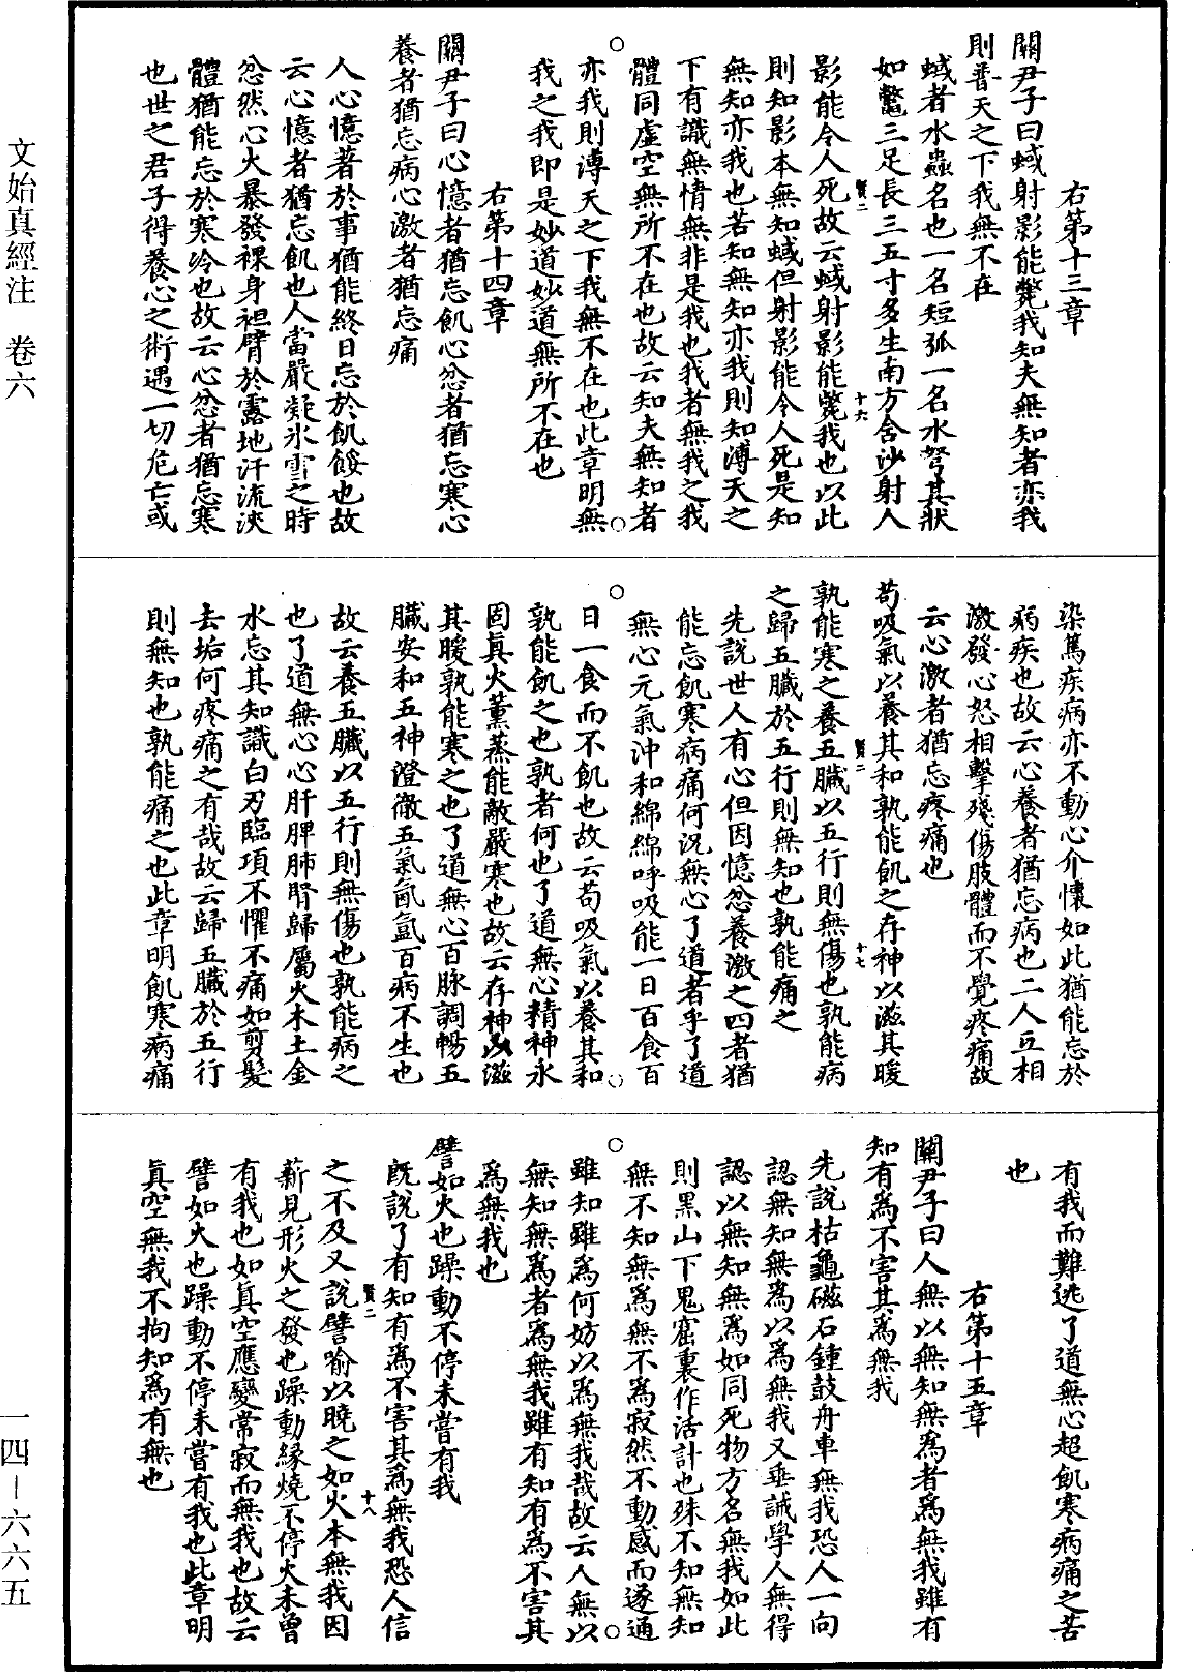 文始真經注　卷六
一四—六六五
右第十三章
關尹子曰蜮射影能斃我知夫無知者亦我
則普天之下我無不在
蜮者水蟲名也一名短狐一名水弩其狀
如鼈三足長三五寸多生南方含沙射人
賢二
十六
影能令人死故云蜮射影能斃我也以此
則知影本無知蜮但射影能令人死是知
無知亦我也苦知無知亦我則知溥天之
下有識無情無非是我也我者無我之我
體同虛空無所不在也故云知夫無知者
亦我則溥天之下我無不在也此章明無
我之我即是妙道妙道無所不在也
右第十四章
關尹子曰心憶者猶忘飢心忿者猶忘寒心
養者猶忘病心激者猶忘痛
人心憶著於事猶能終日忘於飢餒也故
云心憶者猶忘飢也人當嚴凝氷雪之時
忿然心火暴發裸身袒臂於露地汗流浹
體猶能忘於寒冷也故云心忿者猶忘寒
也世之君子得養心之術遇一切危亡或
染篤疾病亦不動心介懷如此猶能忘於
病疾也故云心養者猶忘病也二人互相
激發心怒相擊殘傷肢體而不覺疼痛故
云心激者猶忘疼痛也
苟吸氣以養其和孰能飢之存神以滋其暖
賢二
十七
孰能寒之養五臟以五行則無傷也孰能病
之歸五臟於五行則無知也孰能痛之
先說世人有心但因憶忿養激之四者猶
能忘飢寒病痛何況無心了道者乎了道
無心元氣沖和綿綿呼吸能一日百食百
日一食而不飢也故云苟吸氣以養其和
孰能飢之也孰者何也了道無心精神永
固真火薰蒸能敵嚴寒也故云存神以滋
其暖孰能寒之也了道無心百脉調暢五
臟安和五神澄徹五氣氤氳百病不生也
故云養五臟以五行則無傷也孰能病之
也了道無心心肝脾肺腎歸屬火木土金
水忘其知識白刃臨項不懼不痛如剪髮
去垢何疼痛之有哉故云歸五臟於五行
則無知也孰能痛之也此章明飢寒病痛
有我而難逃了道無心超飢寒病痛之苦
也
右第十五章
關尹子曰人無以無知無為者為無我雖有
知有為不害其為無我
先說枯龜磁石鐘鼓舟車無我恐人一向
認無知無為以為無我又垂誡學人無得
認以無知無為如同死物方名無我如此
則黑山下鬼窟裏作活計也殊不知無知
無不知無為無不為寂然不動感而遂通
雖知雖為何妨以為無我哉故云人無以
無知無為者為無我雖有知有為不害其
為無我也
譬如火也躁動不停未嘗有我
既說了有知有為不害其為無我恐人信
賢二
十八
之不及又說譬喻以曉之如火本無我因
薪見形火之發也躁動緣燒不停火未曾
有我也如真空應變常寂而無我也故云
譬如火也躁動不停未嘗有我也此章明
真空無我不拘知為有無也